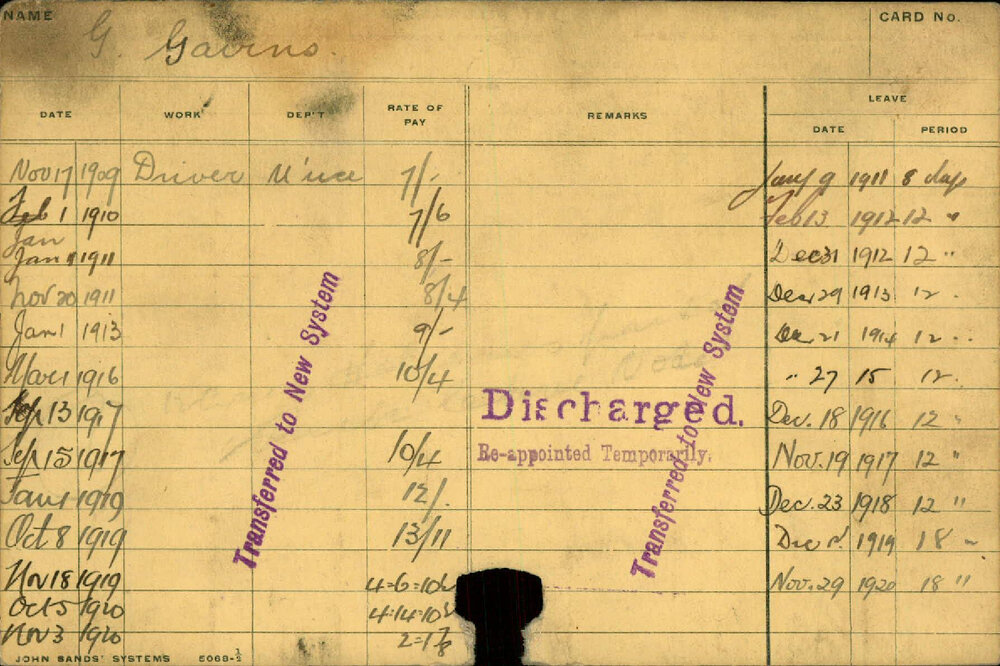 NAME
G. Gavins.
CARD No.
DATE WORK DEP'T RATE OF PAY REMARKS LEAVE
DATE PERIOD
Nov 17 1909 Driver 7/- Jany 9 1911 8 days
Feb 1 1910 7/6 Feb 13 1912 12 "
Jan
Jan 1 1911 8/- Dec 31 1912 12 "
Nov 20 1911 8/4 Dec 29 1913 12 "
Jan 1 1913 9/- Dec 21 1914 12 "
Mar 1 1916 10/4 " 27 15 12 "
Sep 13 1917 Discharged. Dec. 18 1916 12 "
Sep 15 1917 10/4 Re-appointed Temporarily. Nov. 19 1917 12 "
Jan 1 1919 12/. Dec. 23 1918 12 "
Oct 8 1919 13/11 Dec 1919 18 "
Nov 18 1919 4=6=10 Nov. 29 1920 18 "
Oct 5 1920 4=14=10
Nov 3 1920 2=1
Transferred to New System
Transferred to New System
JOHN SANDS' SYSTEMS 5068-½